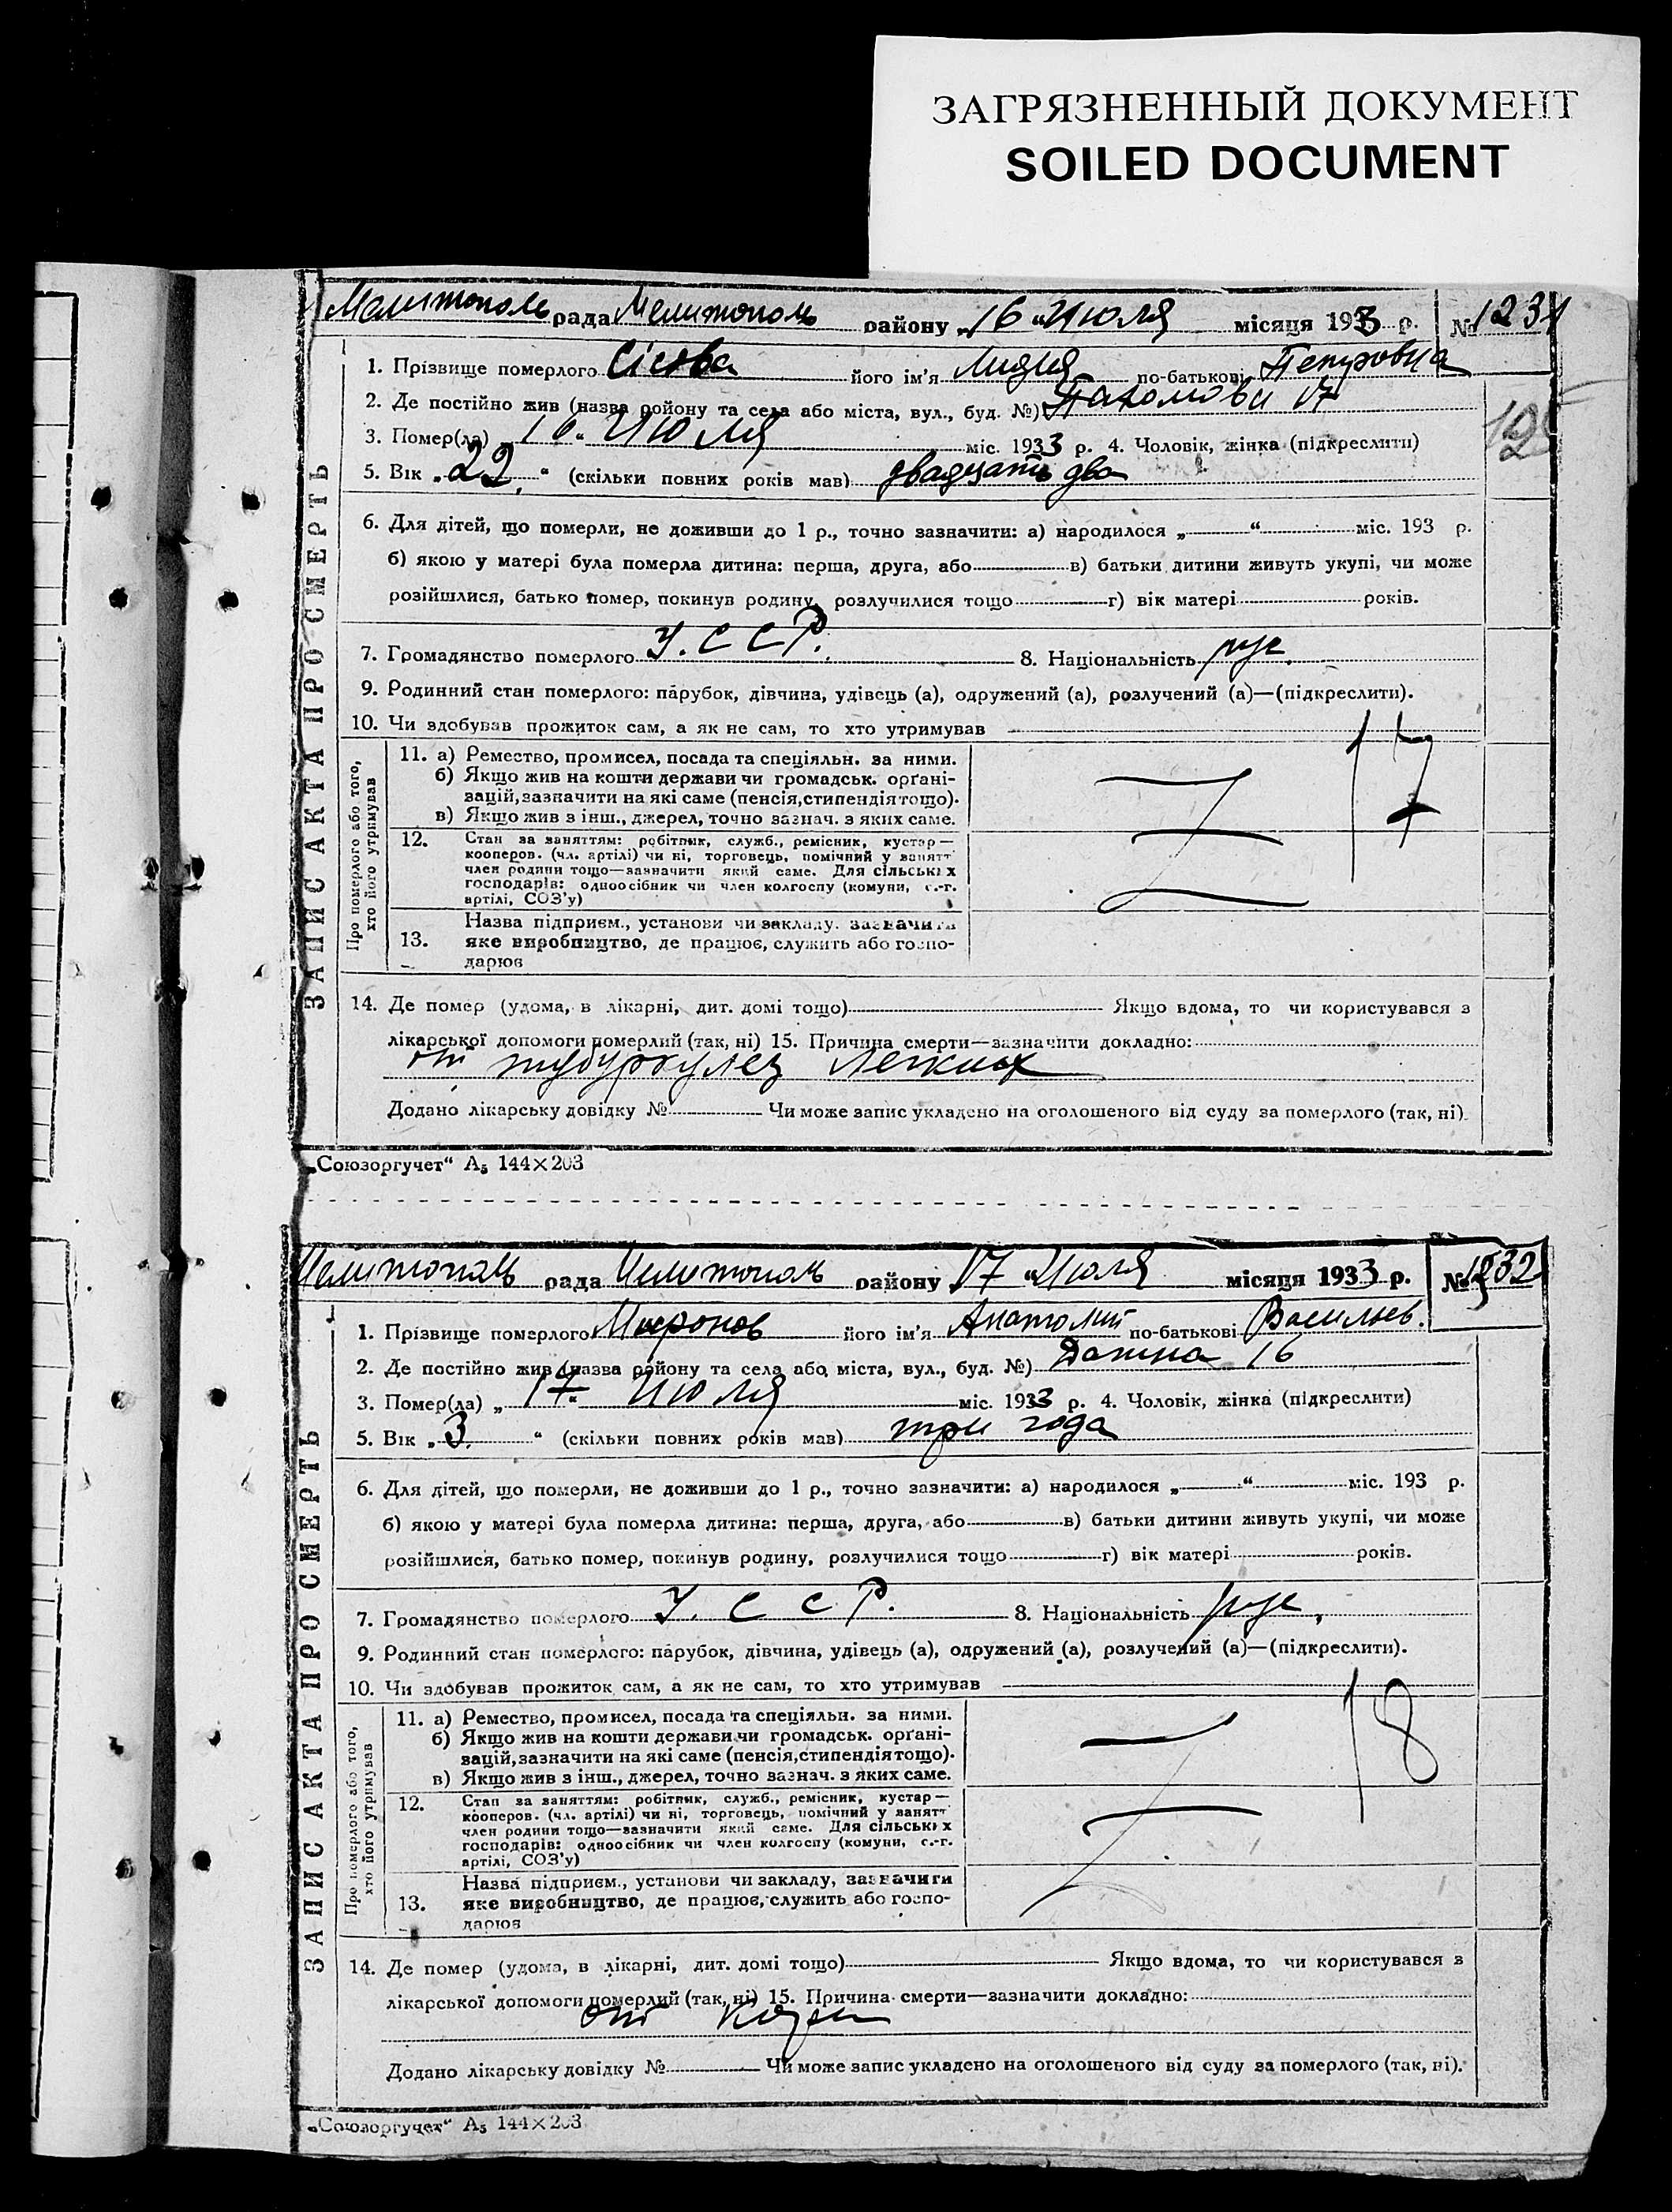 ЗАГРЯЗНЕННЫЙ ДОКУМЕНТ
SOILED DOCUMENT
Мелитополь рада Мелитополь району „16 “ Июля місяця 1933 р. № 1231
1. Прізвище померлого його ім'я Лидия по-батькові Петровна
2. Де постійно жив (назва району та села або міста, вул., буд. №) 17
3. Помер(ла) „ 16 “ Июля міс. 1933 р. 4. Чоловік, жінка (підкреслити)
5. Вік „ 22 “ (скільки повних років мав) двадцать два
6. Для дітей, що померли, не доживши до 1 р., точно зазначити: а) народилося „ “ міс. 193 р.
б) якою у матері була померла дитина: перша, друга, або в) батьки дитини живуть укупі, чи може
розійшлися, батько помер, покинув родину, розлучилися тощо г) вік матері років.
7. Громадянство померлого У. С С Р. 8. Національність рус.
9. Родинний стан померлого: парубок, дівчина, удівець (а), одружений (а), розлучений (а)—(підкреслити).
10. Чи здобував прожиток сам, а як не сам, то хто утримував
17
Про померлого або того, хто його утримував
11. а) Ремество, промисел, посада та спеціяльн. за ними.
б) Якщо жив на кошти держави чи громадськ. орґані-
зацій, зазначити на які саме (пенсія, стипендія тощо).
в) Якщо жив з інш., джерел, точно зазнач. з яких саме.
12. Стан за заняттям: робітник, служб., ремісник, кустар—
кооперов. (чл. артілі) чи ні, торговець, помічний у занятт
член родини тощо—зазначити який саме. Для сільських
господарів: одноосібник чи член колгоспу (комуни, с.-г.
артілі, СОЗ'у)
Назва підприєм., установи чи закладу, зазначити
13. яке виробництво, де працює, служить або госпо-
дарює
14. Де помер (удома, в лікарні, дит. домі тощо) Якщо вдома, то чи користувався з
лікарської допомоги померлий (так, ні) 15. Причина смерти—зазначити докладно:
от тубуркулез легких
Додано лікарську довідку № Чи може запис укладено на оголошеного від суду за померлого (так, ні).
ЗАПИС АКТА ПРО СМЕРТЬ
„Союзоргучет“ А5 144×203
Мелитополь рада Мелитополь району 17 “ Июля місяця 1933 р. № 1232
1. Прізвище померлого Миронов його ім'я Анатолий по-батькові Васильев.
2. Де постійно жив (назва району та села або міста, вул., буд. №) 16
3. Помер(ла) „ 17 “ Июля міс. 1933 р. 4. Чоловік, жінка (підкреслити)
5. Вік „ 3 “ (скільки повних років мав) три года
6. Для дітей, що померли, не доживши до 1 р., точно зазначити: а) народилося „ “ міс. 193 р.
б) якою у матері була померла дитина: перша, друга, або в) батьки дитини живуть укупі, чи може
розійшлися, батько помер, покинув родину, розлучилися тощо г) вік матері років.
7. Громадянство померлого У. С С Р. 8. Національність рус,
9. Родинний стан померлого: парубок, дівчина, удівець (а), одружений (а), розлучений (а)—(підкреслити).
10. Чи здобував прожиток сам, а як не сам, то хто утримував
18
Про померлого або того, хто його утримував
11. а) Ремество, промисел, посада та спеціяльн. за ними.
б) Якщо жив на кошти держави чи громадськ. орґані-
зацій, зазначити на які саме (пенсія, стипендія тощо).
в) Якщо жив з інш., джерел, точно зазнач. з яких саме.
12. Стан за заняттям: робітник, служб., ремісник, кустар—
кооперов. (чл. артілі) чи ні, торговець, помічний у занятт
член родини тощо—зазначити який саме. Для сільських
господарів: одноосібник чи член колгоспу (комуни, с.-г.
артілі, СОЗ'у)
Назва підприєм., установи чи закладу, зазначити
13. яке виробництво, де працює, служить або госпо-
дарює
14. Де помер (удома, в лікарні, дит. домі тощо) Якщо вдома, то чи користувався з
лікарської допомоги померлий (так, ні) 15. Причина смерти—зазначити докладно:
от кори
Додано лікарську довідку № Чи може запис укладено на оголошеного від суду за померлого (так, ні).
ЗАПИС АКТА ПРО СМЕРТЬ
„Союзоргучет“ А5 144×203